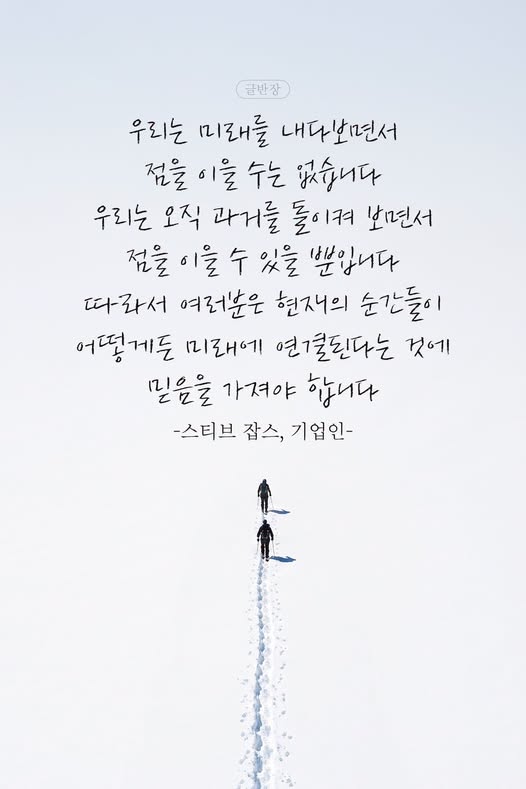 글반장
우리는 미래를 내다보면서
점을 이을 수는 없습니다
우리는 오직 과거를 돌이켜 보면서
점을 이을 수 있을 뿐입니다
따라서 여러분은 현재의 순간들이
어떻게든 미래에 연결된다는 것에
믿음을 가져야 합니다
-스티브 잡스, 기업인-